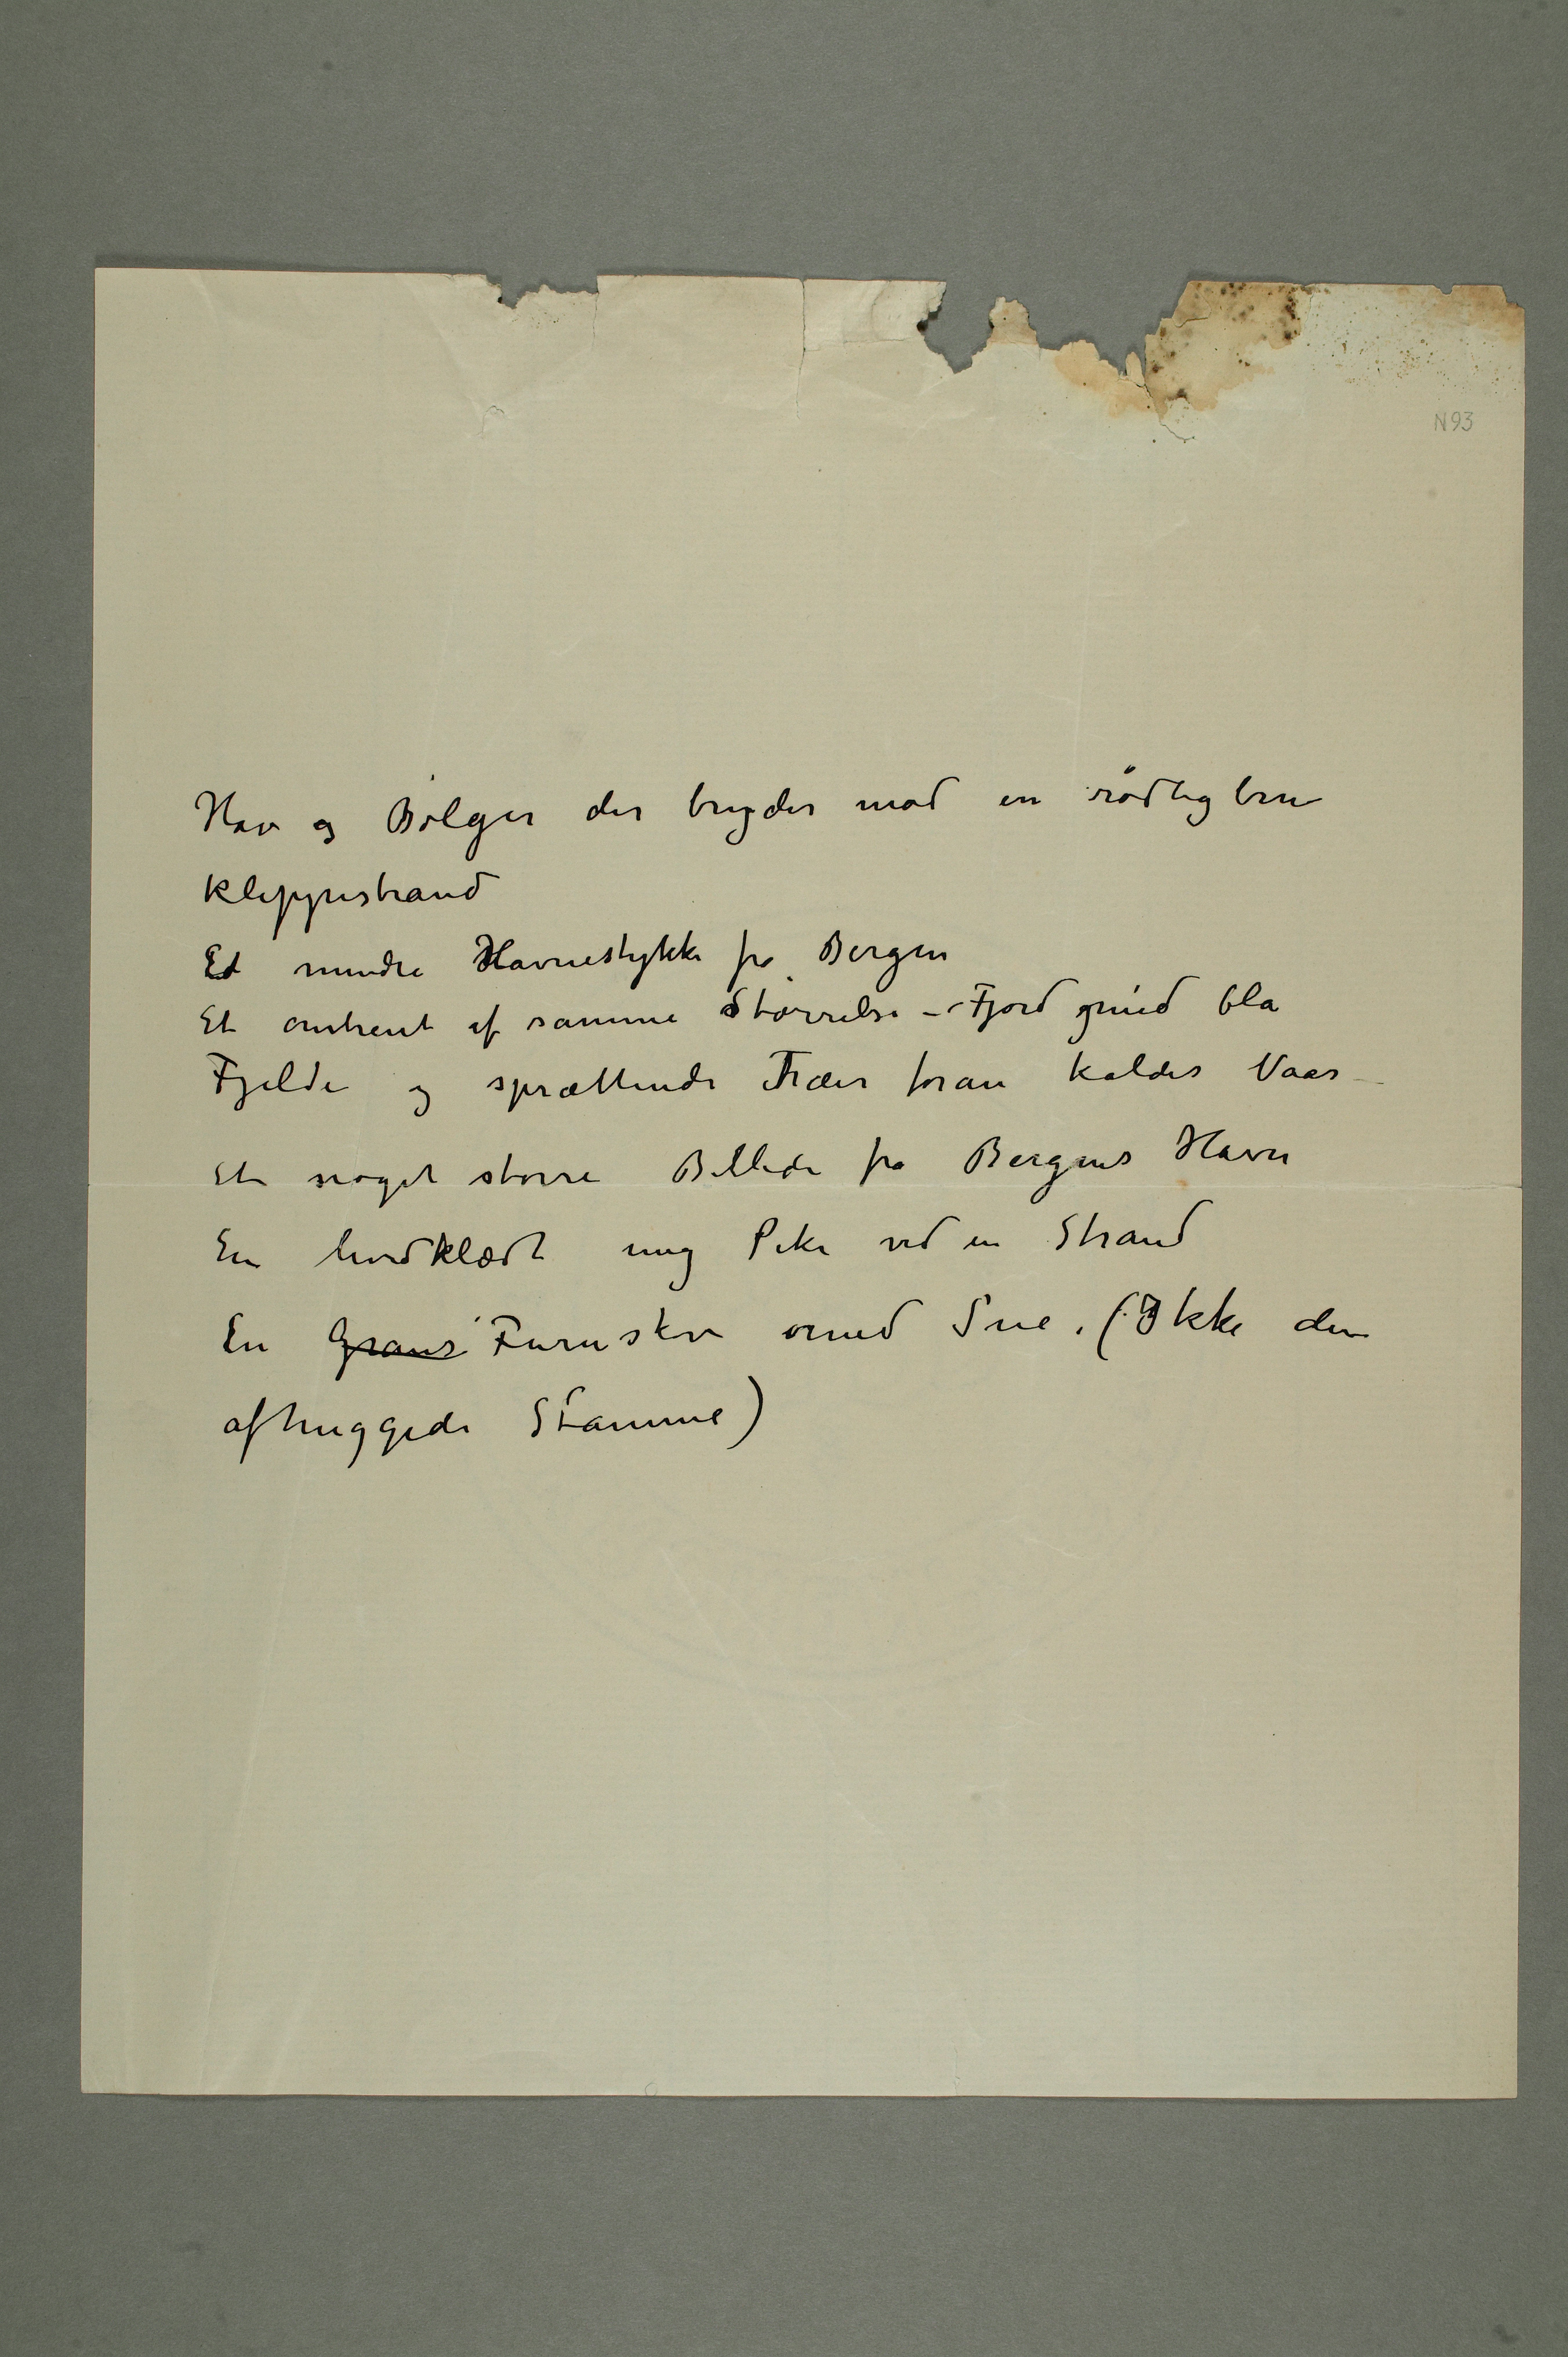 N 93
Hav og Bølger der bryder mod en rødlig brun
klippestrand
Et mindre Havnestykke fra Bergen
Et omtrent af samme Størrelse – Fjord med bla
Fjelde og sprættende Træer foran kaldes Vaar –
Et noget større Billede fra Bergens Havn
En hvidklædt ung Pike ved en Strand
En Grans Furuskov med Sne. (Ikke den
afhuggede Stamme)